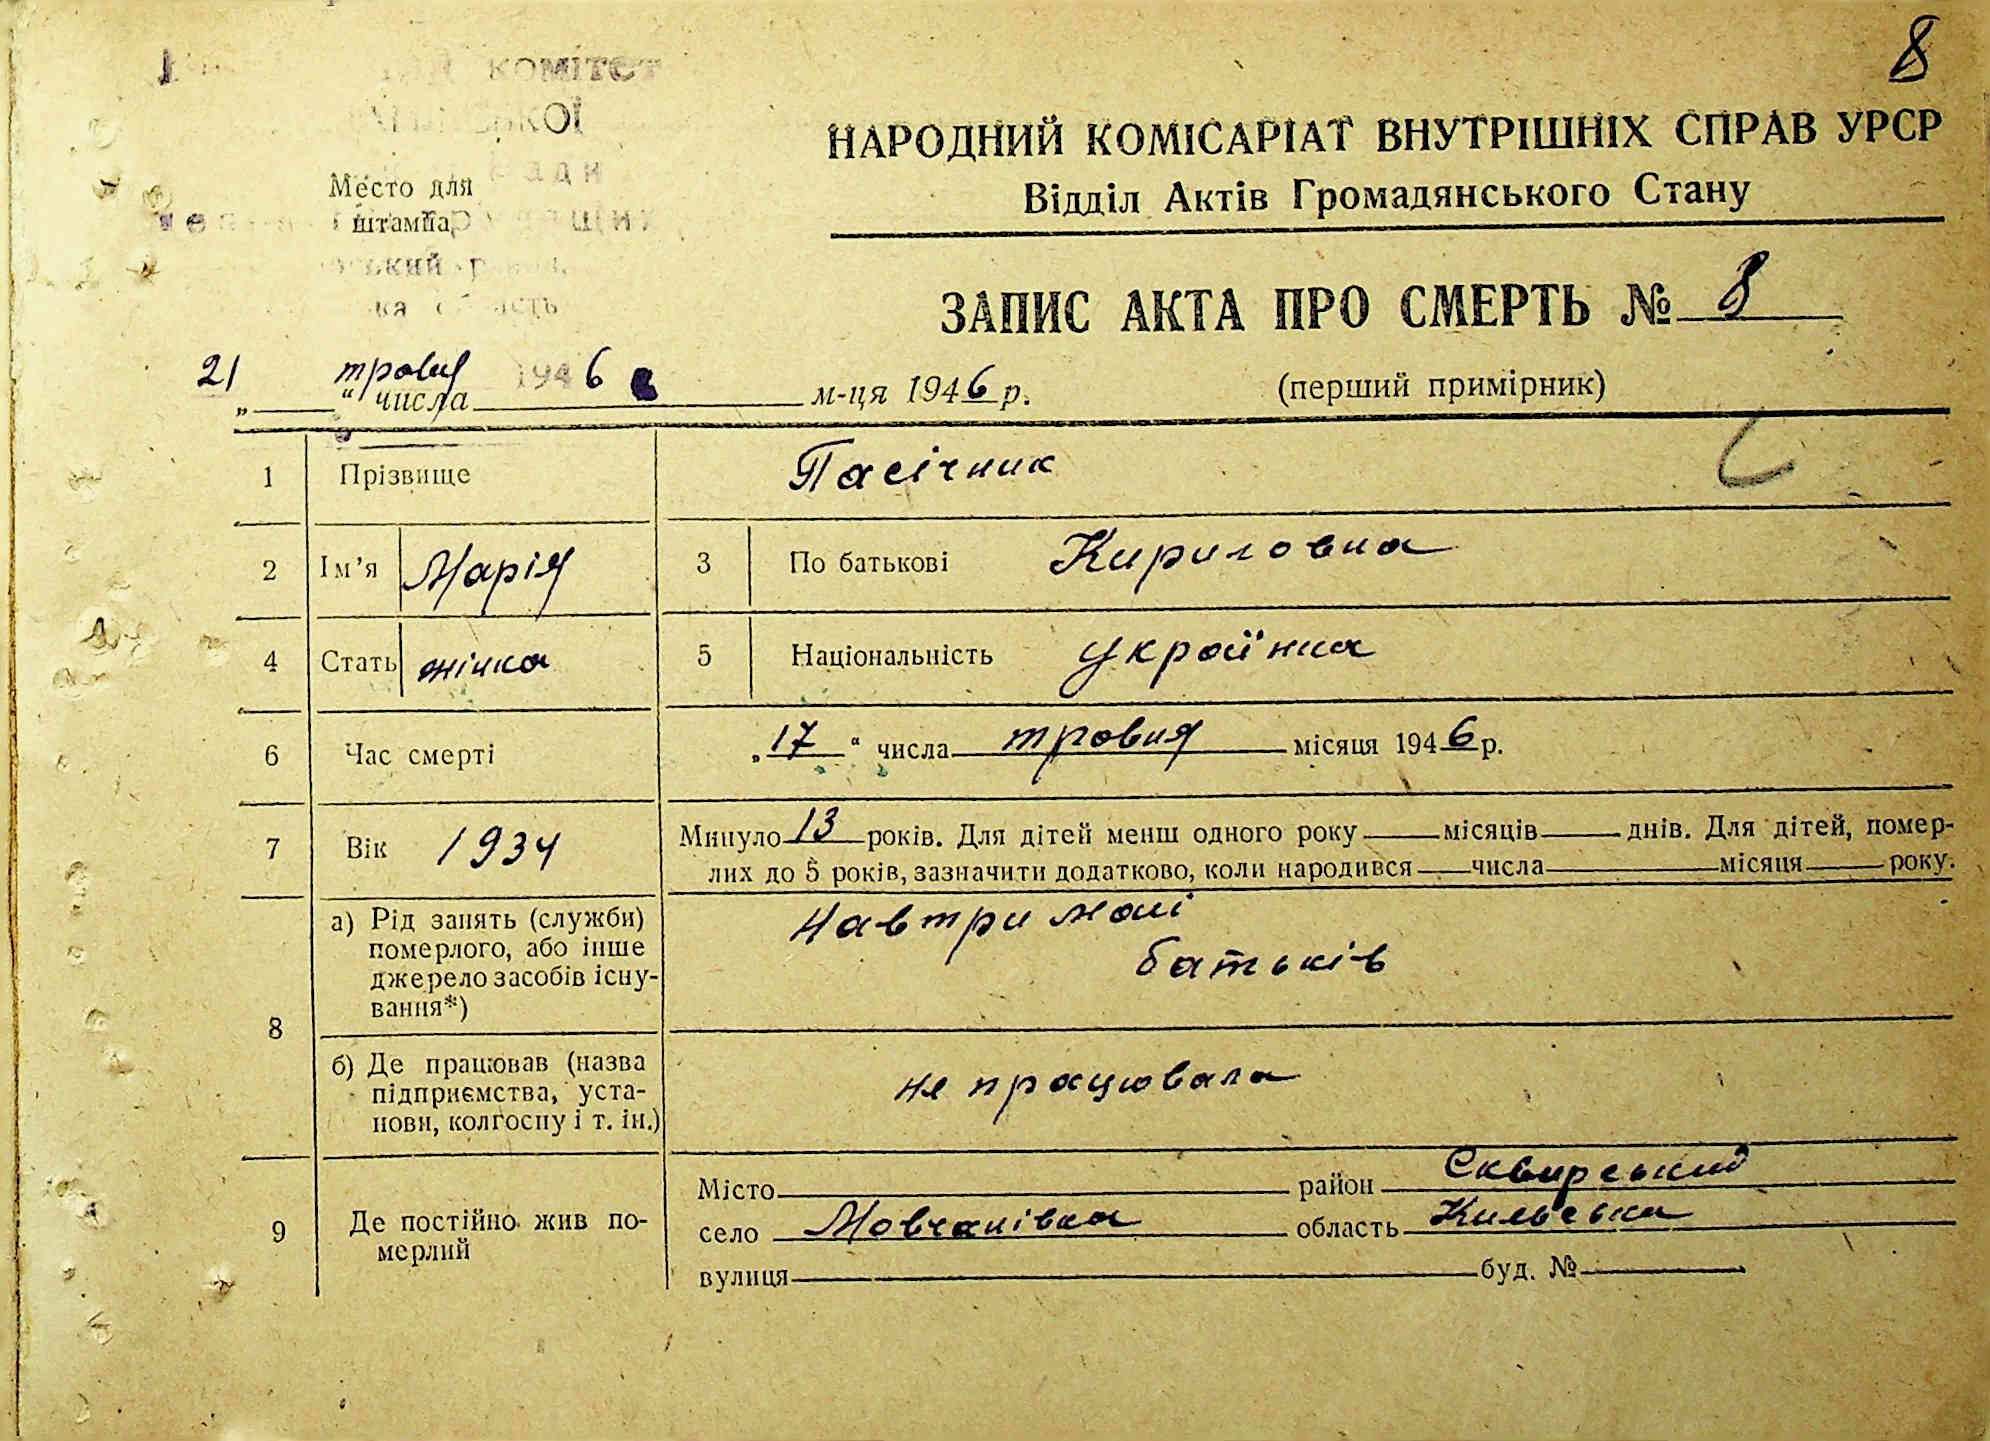 8
КОМІТЕТ
НАРОДНИЙ КОМІСАРІАТ ВНУТРІШНІХ СПРАВ УРСР
Відділ Актів Громадянського Стану
Место для
штампа
ЗАПИС АКТА ПРО СМЕРТЬ № 8
21 травня 1946
„ “ числа м-ця 1946 р.
(перший примірник)
1 Прізвище Пасічник
2 Ім’я Марія 3 По батькові Кириловна
4 Стать жінка 5 Національність українка
6 Час смерті „17“ числа травня місяця 1946 р.
7 Вік 1934 Минуло 13 років. Для дітей менш одного року місяців днів. Для дітей, помер-
лих до 5 років, зазначити додатково, коли народився числа місяця року.
8 а) Рід занять (служби)
померлого, або інше
джерело засобів існу-
вання*)
Навтримані
батьків
б) Де працював (назва
підприємства, уста-
нови, колгоспу і т. ін.)
не працювала
9 Де постійно жив по-
мерлий
Місто район Сквирський
село Мовчанівка область Київська
вулиця буд. №